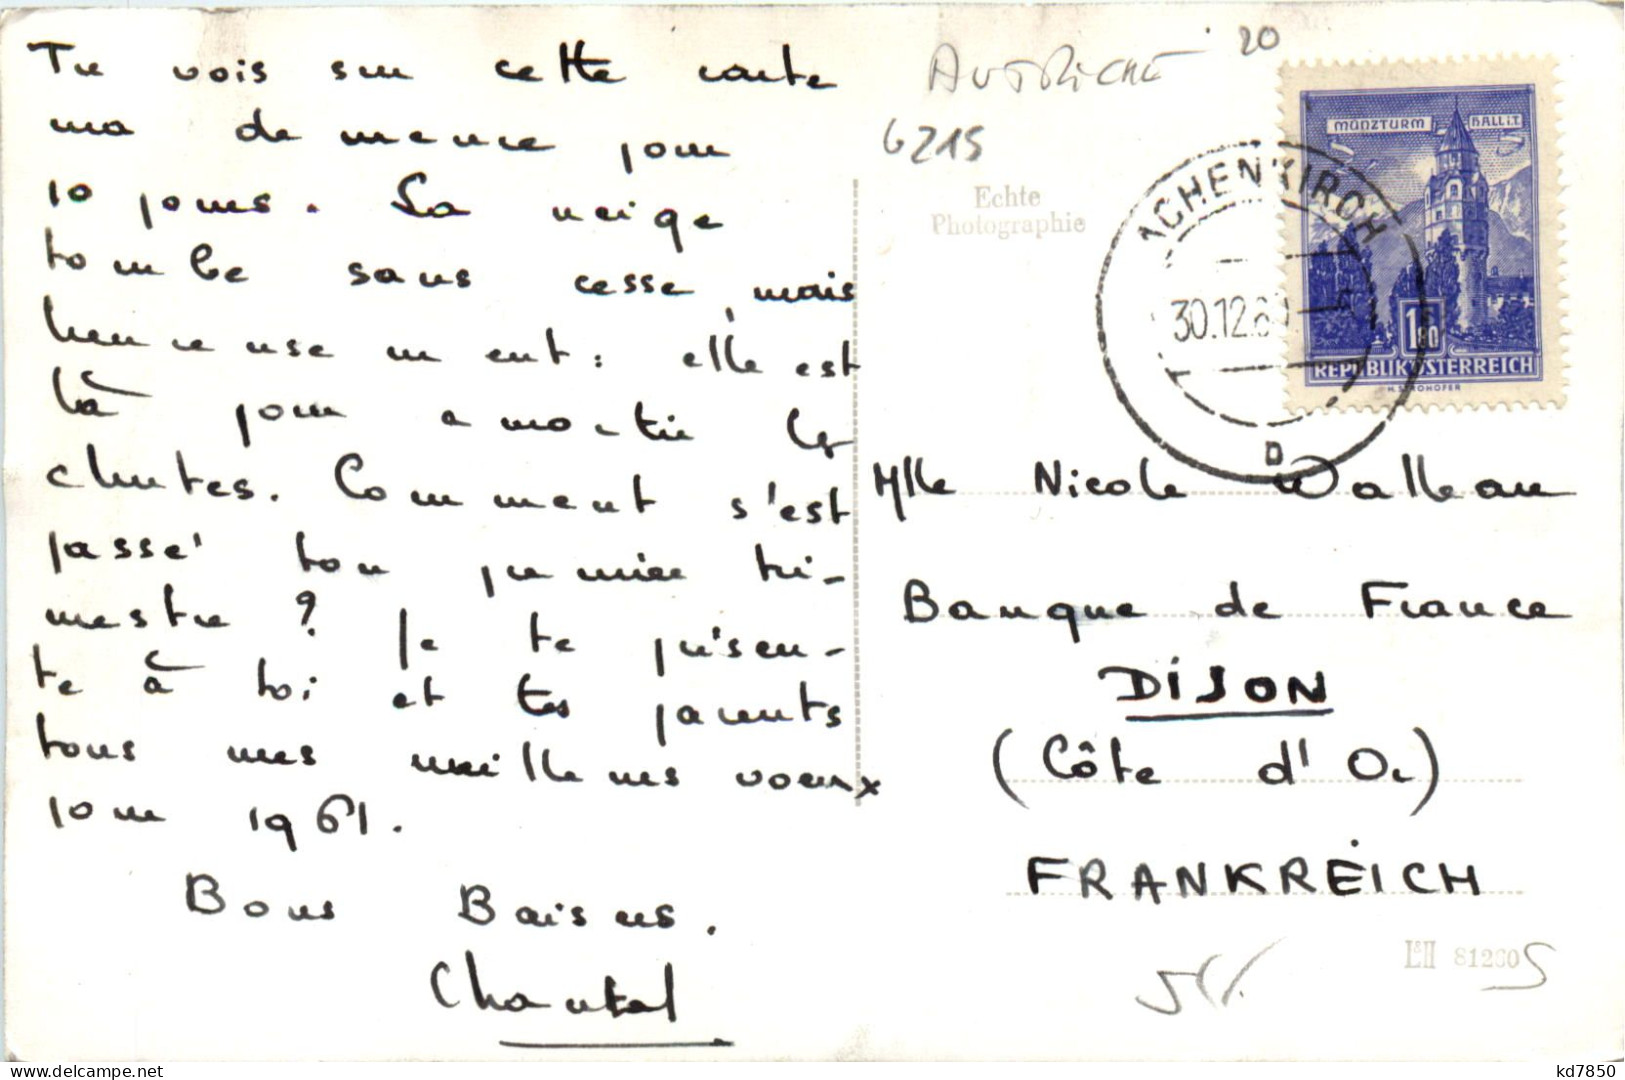 Tu vois sur cette carte
ma demeure pour
10 jours. La neige
tombe sans cesse, mais
heureusement : elle est
là pour amortir les
chutes. Comment s'est
passé ton premier tri-
mestre ? Je te présen-
te à toi et tes parents
tous mes meilleurs voeux
pour 1961.
Bons Baisers.
Chantal
AUTRICHE 20
6215
Echte
Photographie
ACHENKIRCH
30.12.60
D
MÜNZTURM HALL i.T.
1.80
REPUBLIK ÖSTERREICH
H. STROHOFER
Mlle Nicole Walleau
Banque de France
DIJON
(Côte d'Or)
FRANKREICH
L&H 81260
kd7850